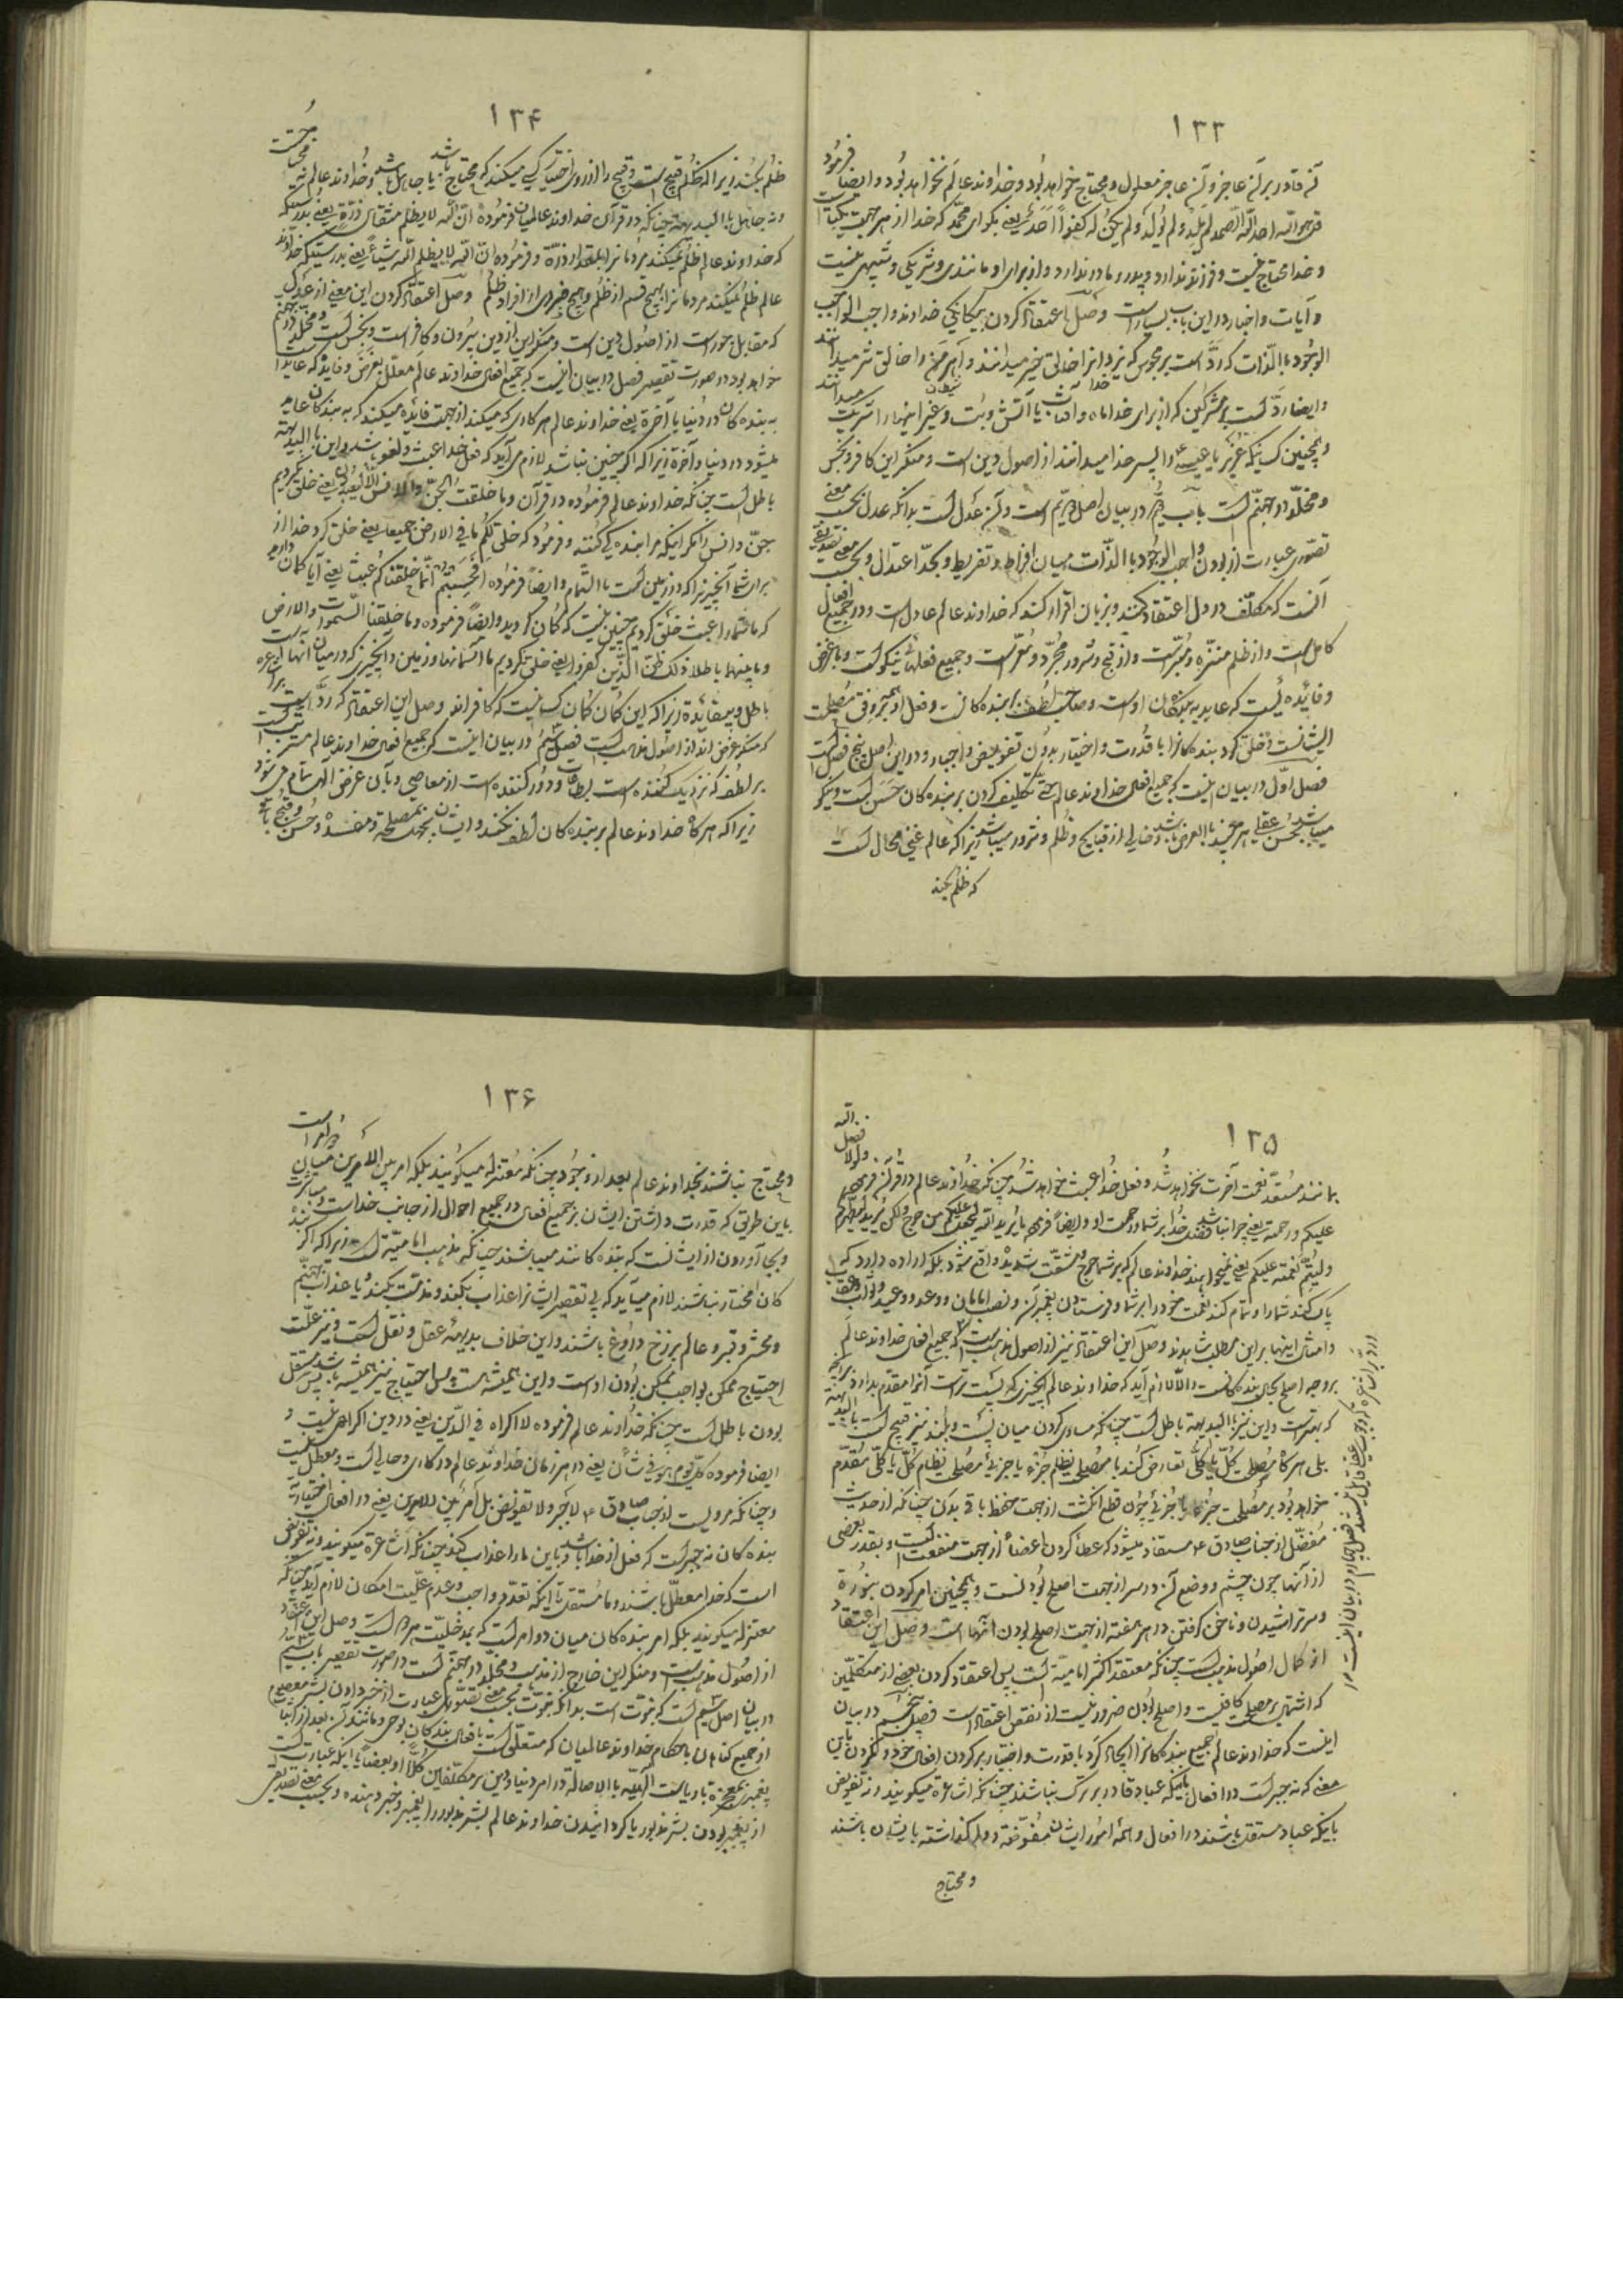 ۱۳۳
که قادر بر آن عاجز و آن عاجز معلول و محتاج خواهد بود و خداوند عالم نخواهد بود و ایضا فرمود
قل هو الله احد الله الصمد لم یلد و لم یولد و لم یکن له کفوا احد یعنی بگو ای محمد که خدا از هر جهت یکتا است
و خدا محتاج نیست و فرزند ندارد و پدر و مادر ندارد و از برای او مانندی و شریکی و شبیهی نیست
و آیات و اخبار در این باب بسیار است وصل اعتقاد کردن بیگانگی خداوند واجب
الوجود بالذات که رد است بر مجوس که یزدان را خالق خیر میدانند و اهرمن را خالق شر میدانند
و ایضا رد است بر مشرکین که از برای خدا ماه و آفتاب یا آتش و بت و غیر اینها را شریک میدانند
و همچنین کسانیکه عزیر یا عیسی را پسر خدا میدانند از اصول دین است و منکر این کافر و نجس
و مخلد در جهنم است باب در بیان اصل دویم است و آن عدل است بدانکه عدل بحسب معنی
تصوری عبارت از بودن واجب الوجود بالذات میان افراط و تفریط و بحد اعتدال و بحسب معنی تصدیقی
آنست که مکلف در دل اعتقاد کند و بزبان اقرار کند که خداوند عالم عادل است و در جمیع افعال
کامل است و از ظلم منزه و مبرّ است و از قبح و شرور مجرد و معرّ است و جمیع فعلهاش نیکو است و با غرض
و فائده ئیست که عاید به بندگان او است و صاحب لطف به بنده کانست و فعل او همه بر وفق مصلحت
ایشانست و خلق کرد بنده کانرا با قدرت و اختیار بدون تفویض و اجبار و در این اصل پنج فصل است
فصل اول در بیان اینست که جمیع افعال خداوند عالم حتی تکلیف کردن بر بنده کان حسن است و نیکو
میباشد بحسن عقلی هر چند بالعرض باشد و خالی از قبایح و ظلم و شرور میباشد زیرا که عالم غنی محال است
که ظلم بکند
۱۳۴
ظلم بکند زیرا که ظلم قبیح است و قبیح را از روی اختیار کسی میکند که محتاج باشد یا جاهل باشد و خداوند عالم نه محتاج است
و نه جاهل بالبدیهه چنانکه در قرآن خداوند عالمیان فرموده ان الله لا یظلم مثقال ذرة یعنی بدرستیکه
که خداوند عالم ظلم نمیکند مردمانرا بمقدار ذرّه و فرموده ان الله لا یظلم الناس شیئاً یعنی بدرستیکه خداوند
عالم ظلم نمیکند مردمانرا بهیچ قسم از ظلم و هیچ فردی از افراد ظلم وصل اعتقاد کردن این معنی از عدل
که مقابل جور است از اصول دین است و منکر این از دین بیرون و کافر است و نجس است و مخلد در جهنم
خواهد بود در صورت تقصیر فصل در بیان اینست که جمیع افعال خداوند عالم معلل بغرض و فایده که عاید
به بنده کان در دنیا یا آخرة یعنی خداوند عالم هر کاری که میکند از جهت فائده میکند که به بندکان عاید
میشود در دنیا و آخرة زیرا که اگر چنین نباشد لازم می‌آید که فعل خدا عبث و لغو باشد و این بالبدیهه
باطل است چنانکه خداوند عالم فرموده در قرآن و ما خلقت الجن و الانس الا لیعبدون یعنی خلق نکردیم
جن و انس را مگر اینکه مرا بنده گی کنند و فرمود که خلق لکم ما فی الارض جمیعا یعنی خلق کرد خدا از
برای شما آنچیزیرا که در زمین است بالتمام و ایضاً فرموده افحسبتم انما خلقناکم عبثا یعنی آیا کمان دارید
که ما شما را عبث خلق کردیم چنین نیست که گمان کردید و ایضاً فرموده و ما خلقنا السموات و الارض
و ما بینهما باطلا ذلک ظن الذین کفروا یعنی خلق نکردیم ما آسمانها و زمین و آنچیزی که در میان آنها است
باطل و بیفائده زیرا که این گمان گمان کسانیست که کافراند وصل این اعتقاد که رد است بر اشاعره
که منکر غرض اند از اصول مذهب است فصل سیم در بیان اینست که جمیع افعال خداوند عالم مشتمل است
بر لطف که نزدیک کننده است بطاعات و دور کننده است از معاصی و بآن غرض الهی تمام می شود
زیرا که هر گاه خداوند عالم بر بنده کان لطف نکند و ایشان بجهت مصلحة و مفسده و حسن و قبح
۱۳۵
بمانند مستعد نعمت آخرت نخواهد شد و فعل خدا عبث خواهد شد چنانکه خداوند عالم در قرآن فرموده و لولا فضل الله
علیکم و رحمته یعنی چرا نباشد فضل خدا بر شما و رحمت او و ایضاً فرموده ما یرید الله لیجعل علیکم من حرج و لکن یرید لیطهرکم
و لیتم نعمته علیکم یعنی نمیخواهد خداوند عالم که بر شما حرج و مشقت شدیده واقع شود بلکه اراده دارد که
پاک کند شما را و تمام کند نعمت خود را بر شما و فرستادن پیغمبران و نصب امامان و وعد و وعید و ثواب و عقاب
و امثال اینها بر این مطلب شاهدند وصل این اعتقاد نیز از اصول مذهب است که جمیع افعال خداوند عالم
بر وجه اصلح بحال بنده کانست و الا لازم آید که خداوند عالم آنچیزی که پست تر است آنرا مقدم بدارد بر آنچه
که بهتر است و این نیز بالبدیهه باطل است چنانکه مساوی کردن میان پست و بلند نیز قبیح است بالبدیهه
بلی هر گاه مصلحت کل یا کلی تعارض کند با مصلحت نظام جزء یا جزئی مصلحت نظام کل یا کلی مقدم
خواهد بود بر مصلحت جزء یا جزئی چون قطع انگشت از جهت حفظ باقی بدن چنانکه از حدیث
مفضل از جناب صادق ع مستفاد میشود که عطا کردن اعضا از جهت منفعت است و بقدر بعضی
از آنها چون چشم و وضع آن در سر از جهت اصلح بودنست و همچنین امر کردن بنوره
و سر تراشیدن و ناخن گرفتن در هر هفته از جهت اصلح بودن آنها است وصل این اعتقاد
از کمال اصول مذهب است چنانکه معتقد اکثر امامیه است پس اعتقاد کردن بعضی از متکلمین
که اشتمال بر مصلحت کافیست و اصلح بودن ضرور نیست از نقص اعتقاد است فصل پنجم در بیان
اینست که خداوند عالم جمیع بنده کانرا ایجاد کرد با قدرت و اختیار بر کردن افعال خود و نکردن باین
معنی که نه جبر است در افعال باینکه عباد قادر بر ترک نباشند چنانکه اشاعره میگویند و نه تفویض
باینکه عباد مستقل باشند در افعال و همه امور ایشان مفوضه و واگذاشته بایشان باشند
و محتاج
۱۳۶
و محتاج نباشند بخداوند عالم بعد از وجود چنانکه معتزله میگویند بلکه امر بین الامرین میان
باین طریق که قدرت داشتن ایشان بر جمیع افعال در جمیع احوال از جانب خداست
و بجا آوردن از ایشانست که بنده کانند میباشند چنانکه مذهب امامیّه است زیرا که اگر
کان مختار نباشند لازم میآید که بی تقصیر ایشانرا عذاب بکند و مذمت بکند و یا عذاب جهنم
و محشر و قبر و عالم برزخ دروغ باشند و این خلاف بدیهه عقل و نقل است و نیز علت
احتیاج ممکن بواجب ممکن بودن او است و این همیشه هست پس احتیاج نیز همیشه باشد پس مستقل
بودن باطل است چنانکه خداوند عالم فرموده لا اکراه فی الدین یعنی در دین اکراهی نیست و
ایضا فرموده کل یوم هو فی شأن یعنی در هر زمان خداوند عالم در کاری و حالی است و معطل نیست
و چنانکه مرویست از جناب صادق ع لا جبر و لا تفویض بل امر بین الامرین یعنی در افعال اختیاریه
بنده کان نه جبر است که فعل از خدا باشد و باین ما را عذاب کند چنانکه اشاعره میگویند و نه تفویض
است که خدا معطل باشد و ما مستقل با آنکه تقدم واجب و عدم علیت امکان لازم آید چنانکه
معتزله میگویند بلکه امر بنده کان میان دو امر است که بمدخلیت هر دو است وصل این اعتقاد
از اصول مذهب است و منکر این خارج از مذهب و مخلد در جهنم است در صورت تقصیر باب سیم
در بیان اصل سیم است که نبوت است بدانکه نبوت بحسب معنی تصوری عبارت از خبر دادن بشر معصوم
از جمیع گناهان باحکام خداوند عالمیان که متعلق است بافعال بندکان بوحی و مانند آن
پیغمبری بمعجزه یا ریاست الهیّه بالاصالة در امر دنیا و دین بر مکلفین کلا او بعضا یا اینکه عبارت است
از پیغمبر بودن بشر مذبور یا گردانیدن خداوند عالم بشر مذبور را پیغمبر و خبر دهنده و بحسب معنی تصدیقی